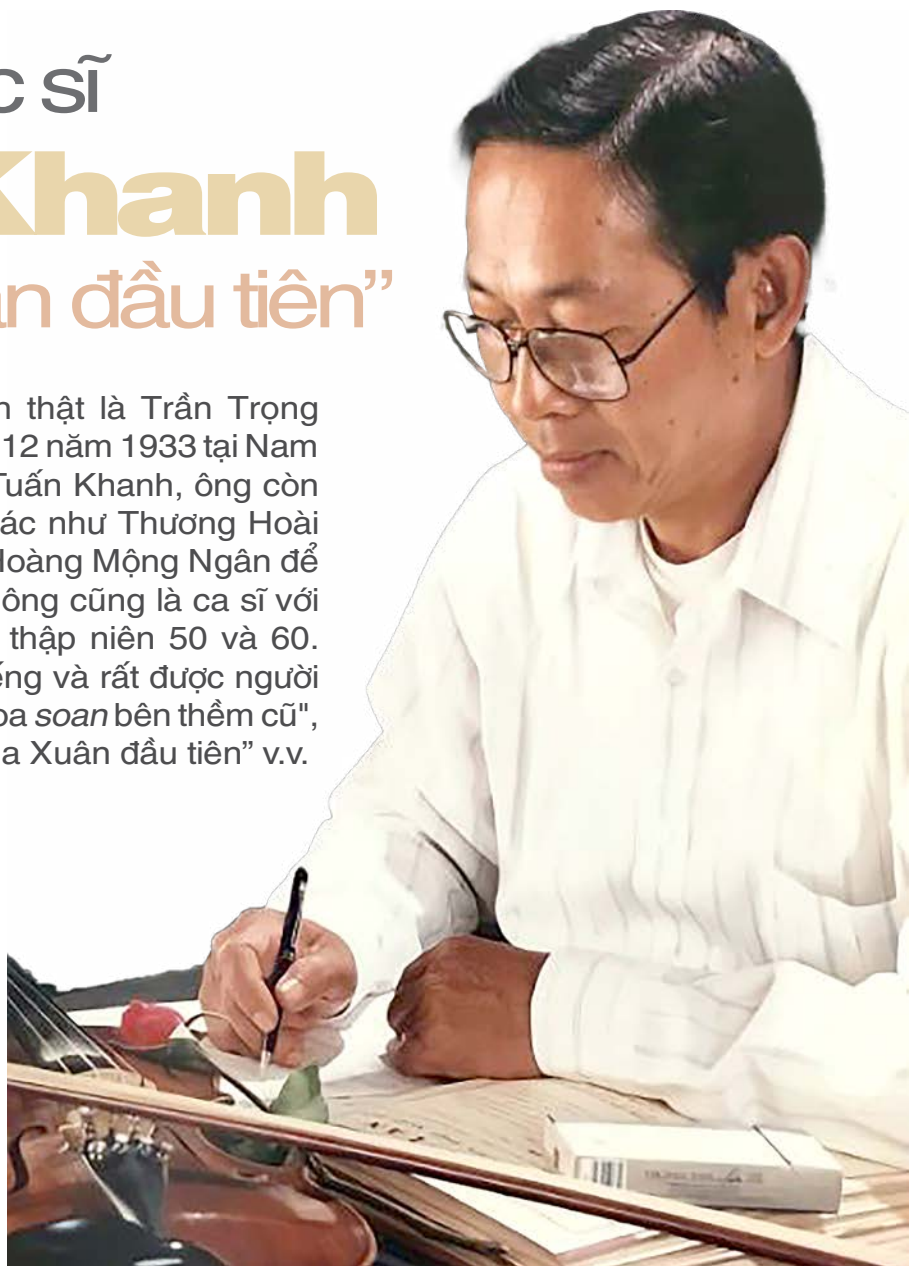 c sĩ
Khanh
ân đầu tiên”
n thật là Trần Trọng
12 năm 1933 tại Nam
Tuấn Khanh, ông còn
ác như Thương Hoài
Hoàng Mộng Ngân để
ông cũng là ca sĩ với
thập niên 50 và 60.
ếng và rất được người
oa soan bên thềm cũ",
a Xuân đầu tiên” v.v.